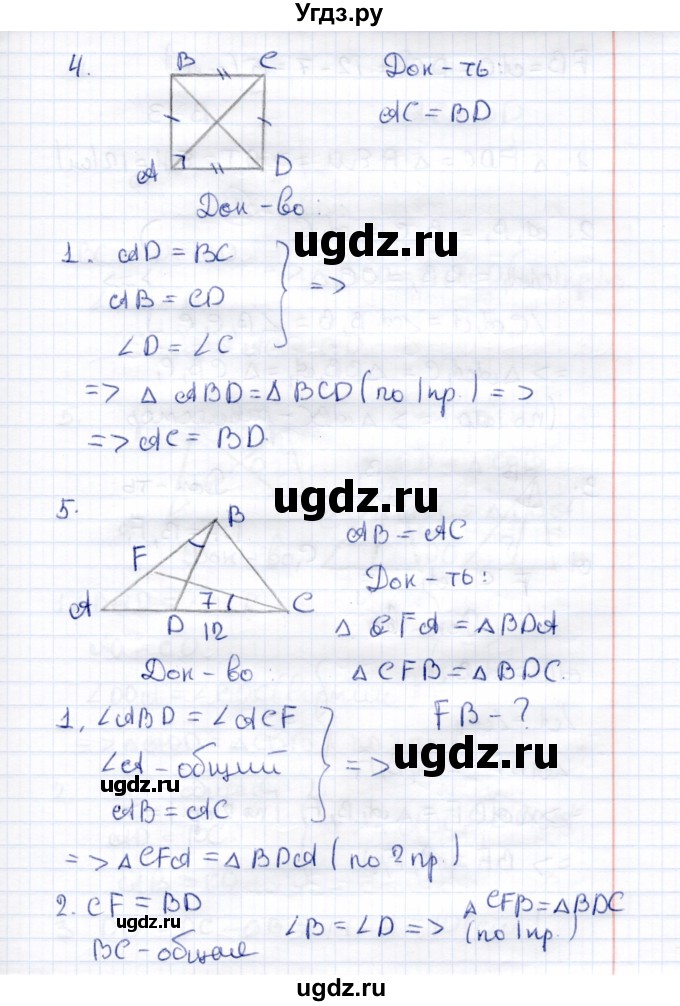 Угдз.ру
4.
B C
A D
Док-ть:
AC = BD
Док-во:
1. AD = BC
AB = CD
∠D = ∠C
} =>
=> Δ ABD = Δ BCD (по 1 пр.) =>
=> AC = BD
ugdz.ru
ugdz.ru
5.
B
F
A D C
7
12
AB = AC
Док-ть:
Δ CFA = Δ BDA
Δ CFB = Δ BDC.
FB - ?
Док-во:
1, ∠ABD = ∠ACF
∠A - общий
AB = AC
} =>
ugdz.ru
ugdz.ru
=> Δ CFA = Δ BDA (по 2 пр.)
2. CF = BD
BC - общая
∠B = ∠D => Δ CFB = Δ BDC
(по 1 пр.)
ugdz.ru
ugdz.ru